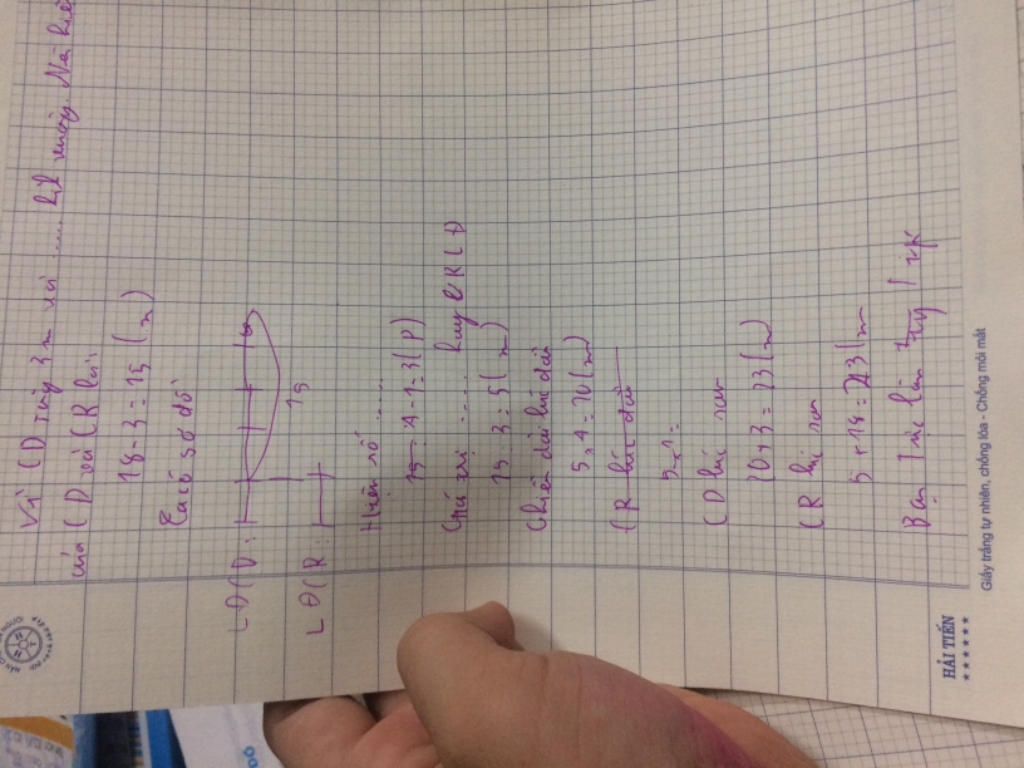 Vì CD tăng 3m và ..... hình vuông. Nên hiệ
của CD và CR là:
18 - 3 = 15 (m)
Ta có sơ đồ
LĐCD:
15
LĐCR:
Hiệu số .....
4 - 1 = 3 (P)
Giá trị ..... hay CRLĐ
15 : 3 = 5 (m)
Chiều dài lúc đầu
5 x 4 = 20 (m)
CR lúc đầu
5 x 1 =
CD lúc sau
20 + 3 = 23 (m)
CR lúc sau
5 + 18 = 23 (m
Bạn
HẢI TIẾN
Giấy trắng tự nhiên, chống lóa - Chống mỏi mắt